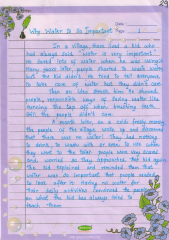 29
Date:
Page:
Why Water Is So Important
In a village, there lived a kid who
had always said "water is very important."
He saved lots of water when he was young.
Many years later, people started to waste water
but the kid didn't. He tried to tell everyone
to take care of water but they didn't care.
him he showed
people responsible ways of saving water like
turning the tap off when brushing teeth.
Still the people didn't care.
A month later, on a cold freezy morning
the people of the village woke up and discovered
that there was no water. They had nothing
to drink, to wash with or even to use when
they went to the toilet. people were very scared
and worried so they approached the kid again.
The kid explained and reminded them that
water was so important that people needed
to look after it. Having no water for
their daily activities convinced the people
on what the kid has always tried to
teach them.